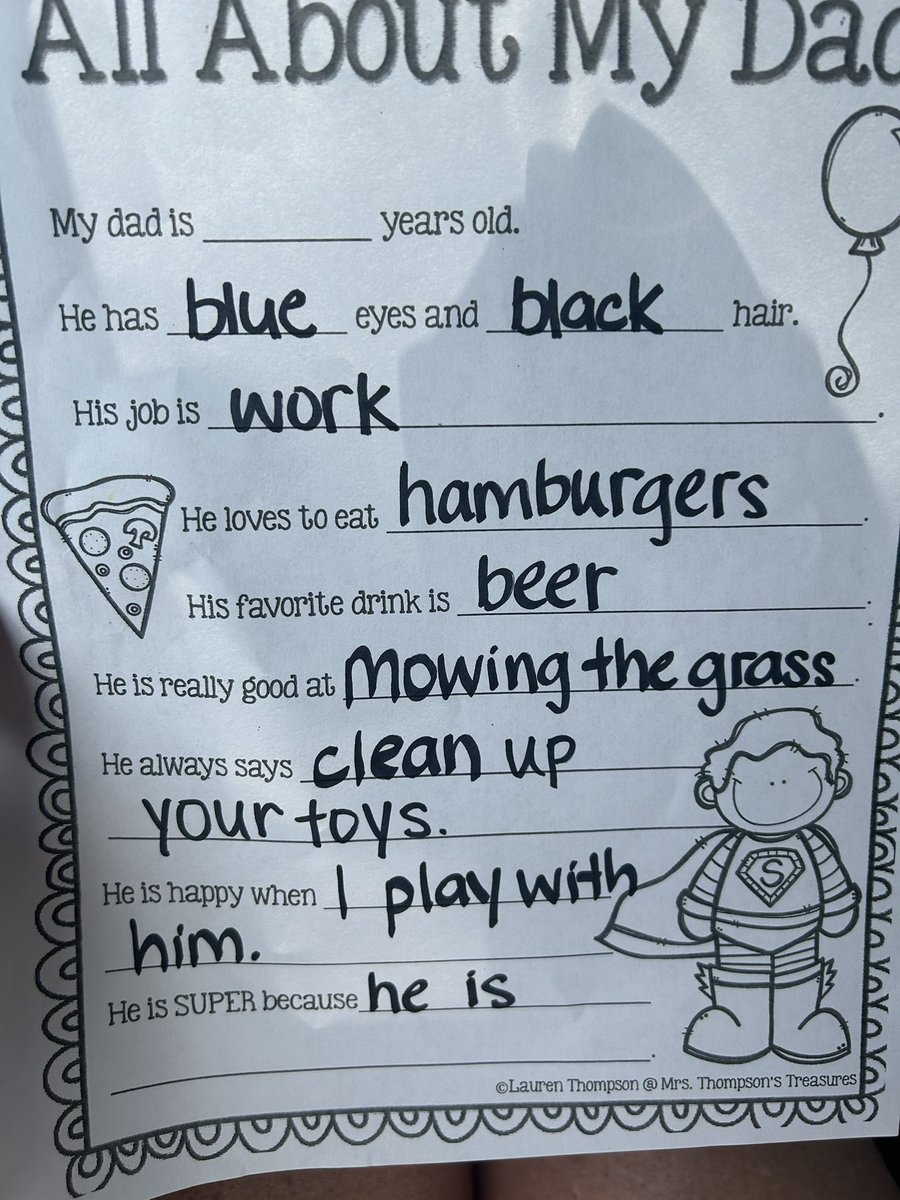 All About My Dad
My dad is ________ years old.
He has blue eyes and black hair.
His job is work.
He loves to eat hamburgers.
His favorite drink is beer.
He is really good at Mowing the grass.
He always says clean up
your toys.
He is happy when I play with
him.
He is SUPER because he is
.
S
©Lauren Thompson @ Mrs. Thompson's Treasures